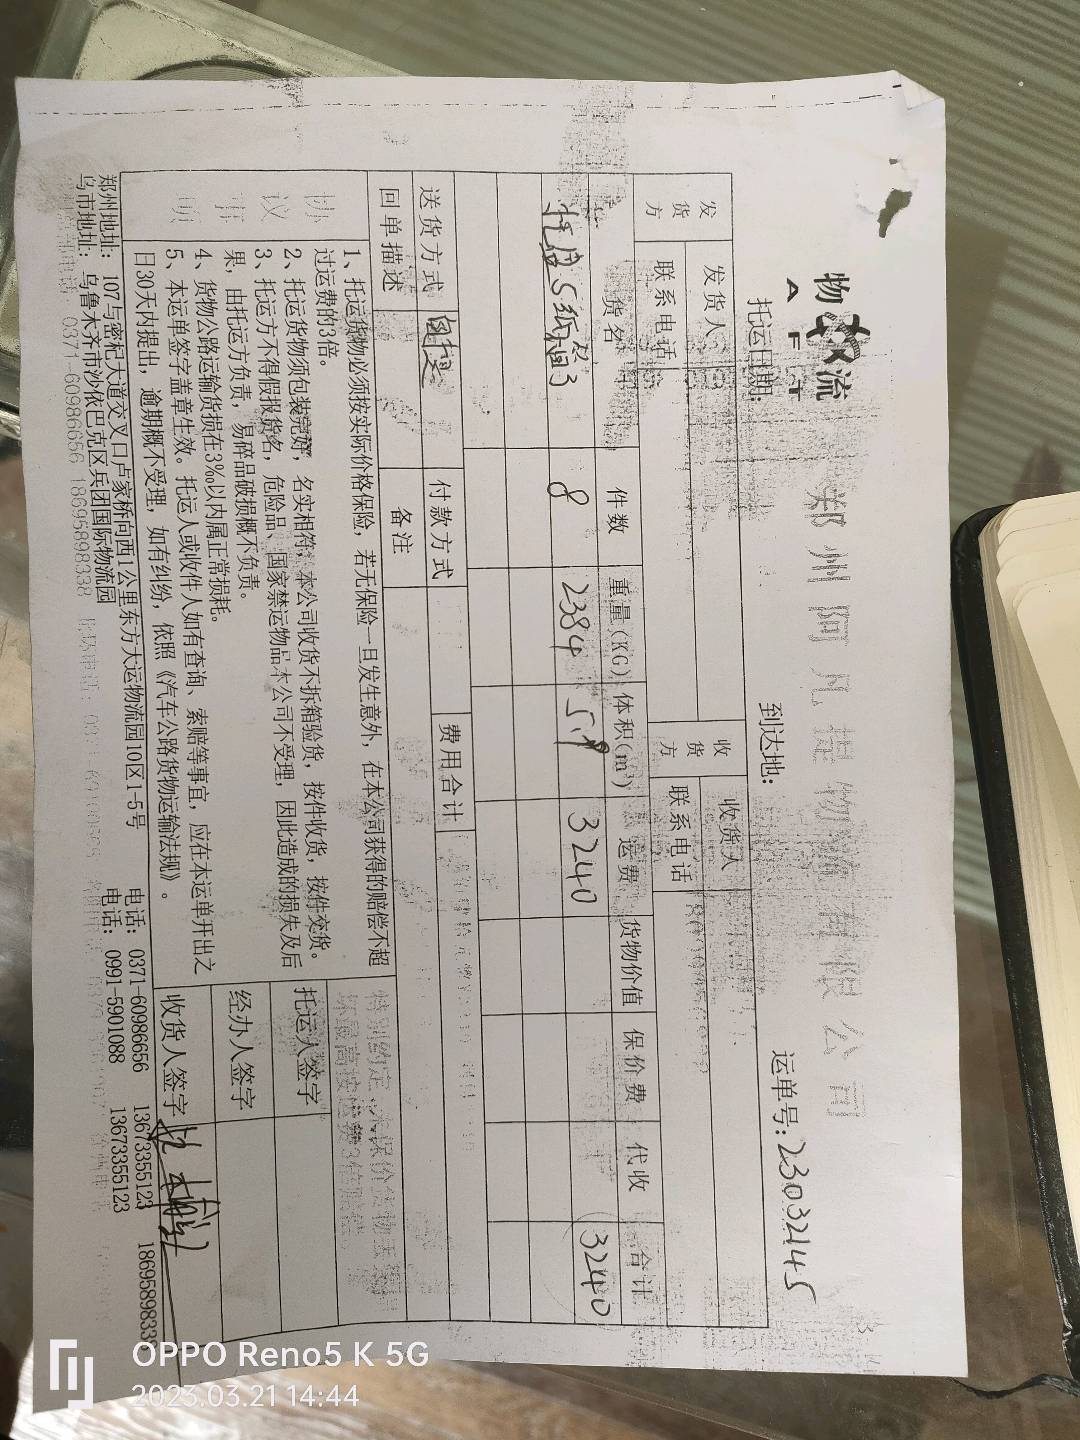 郑州阿凡提物流有限公司
物流
A F T
托运日期:
到达地:
运单号:23032145
发货方
发货人
收货方
收货人
联系电话
联系电话
货名
件数
重量(KG)
体积(m³)
运费
货物价值
保价费
代收
合计
托盘5纸箱3
8
2384
3240
3240
送货方式
付款方式
费用合计
回单描述
备注
协议事项
1、托运货物必须按实际价格保险，若无保险一旦发生意外，在本公司获得的赔偿不超
过运费的3倍。
2、托运货物须包装完好，名实相符，本公司收货不拆箱验货，按件收货，按件交货。
3、托运方不得假报货名，危险品、国家禁运物品本公司不受理，因此造成的损失及后
果，由托运方负责，易碎品破损概不负责。
4、货物公路运输货损在3‰以内属正常损耗。
5、本运单签字盖章生效。托运人或收件人如有查询、索赔等事宜，应在本运单开出之
日30天内提出，逾期概不受理，如有纠纷，依照《汽车公路货物运输法规》。
托运人签字
经办人签字
收货人签字
郑州地址：107与密杞大道交叉口卢家桥向西1公里东方大运物流园10区1-5号
电话：0371-60986656 13673355123 18695898338
乌市地址：乌鲁木齐市沙依巴克区兵团国际物流园
电话：0991-5901088 13673355123
0371-60986656 18695898338
OPPO Reno5 K 5G
2023.03.21 14:44